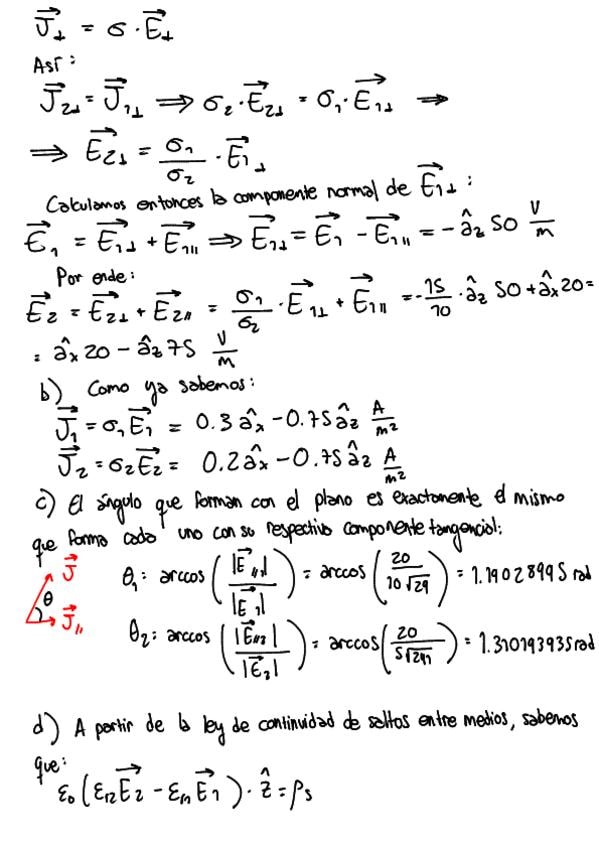 J⃗⊥ = σ · E⃗⊥
Así:
J⃗2⊥ = J⃗1⊥ ⟹ σ2 · E⃗2⊥ = σ1 · E⃗1⊥ ⟹
⟹ E⃗2⊥ = σ1/σ2 · E⃗1⊥
Calculamos entonces la componente normal de E⃗1⊥ :
E⃗1 = E⃗1⊥ + E⃗1|| ⟹ E⃗1⊥ = E⃗1 − E⃗1|| = − âz 50 V/m
Por ende:
E⃗2 = E⃗2⊥ + E⃗2|| = σ1/σ2 · E⃗1⊥ + E⃗1|| = −15/10 · âz 50 + âx 20 =
= âx 20 − âz 75 V/m
b) Como ya sabemos:
J⃗1 = σ1 E⃗1 = 0.3 âx − 0.75 âz A/m²
J⃗2 = σ2 E⃗2 = 0.2 âx − 0.75 âz A/m²
c) El ángulo que forman con el plano es exactamente el mismo
que forma cada uno con su respectivo componente tangencial:
θ1: arccos(|E⃗||1|/|E⃗1|) = arccos(20/10√29) = 1.19028995 rad
J⃗
θ
J⃗||
θ2: arccos(|E⃗||2|/|E⃗2|) = arccos(20/5√241) = 1.310193935 rad
d) A partir de la ley de continuidad de saltos entre medios, sabemos
que:
ε0 (εr2 E⃗2 − εr1 E⃗1) · ẑ = ρs